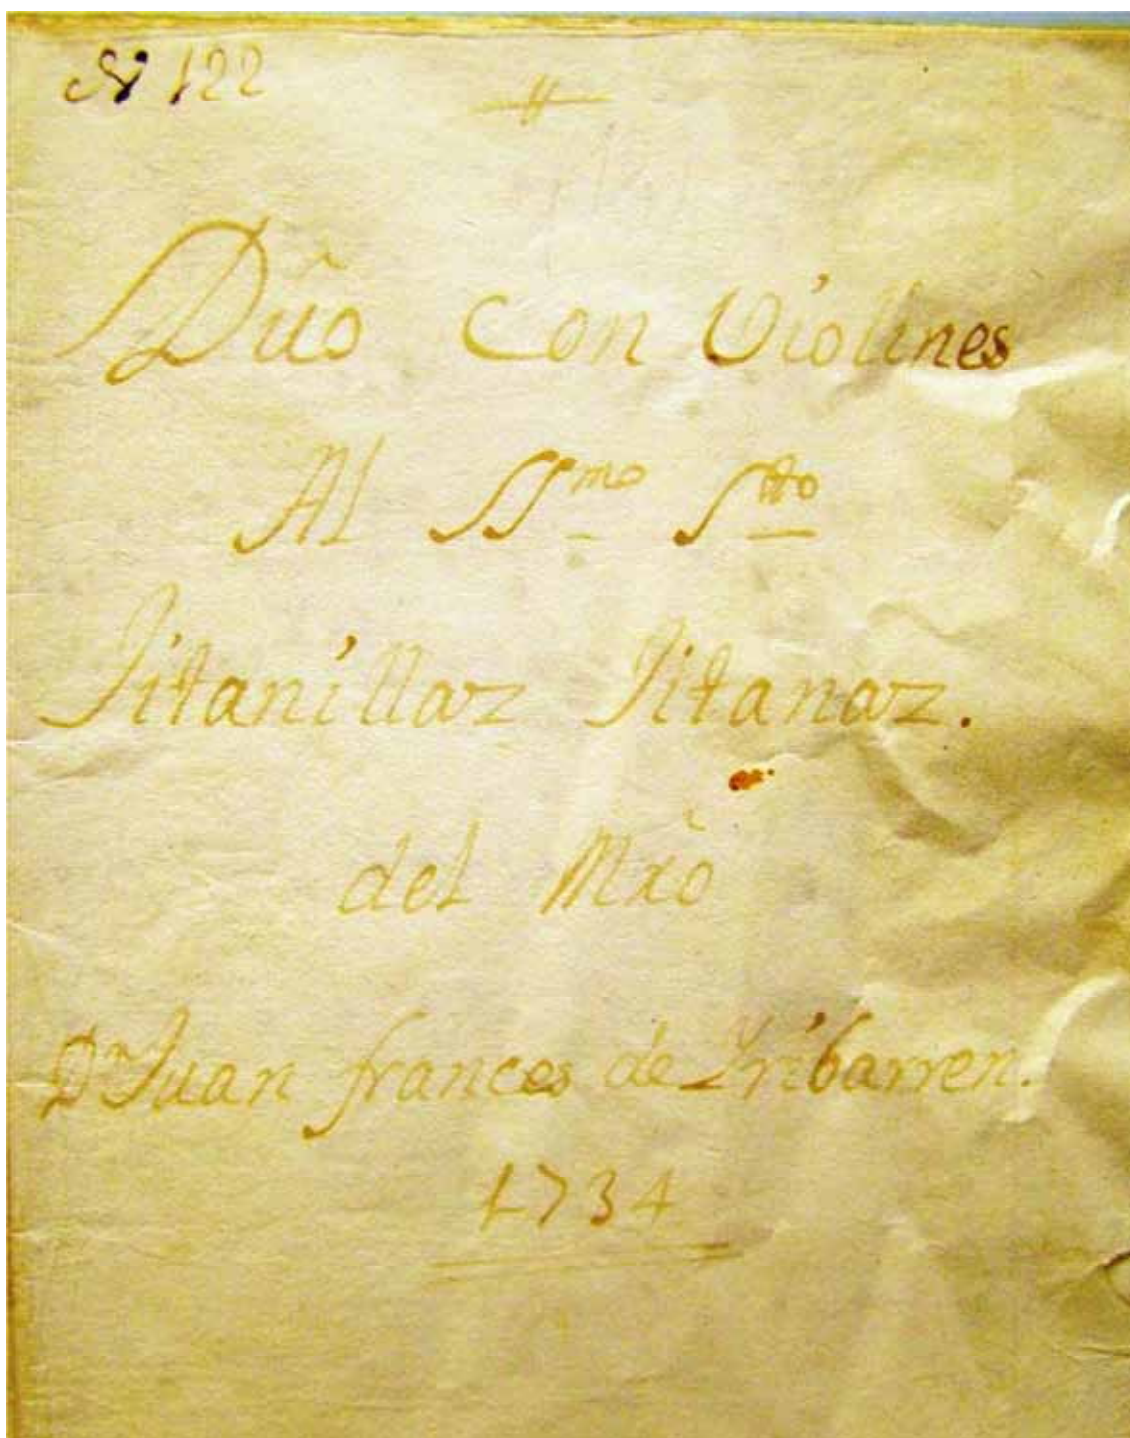 Nº 122
Dúo Con Violines
Al SSmo Stto
Jitanillaz Jitanaz.
del Mrõ
Dn Juan frances de Yribarren.
1734